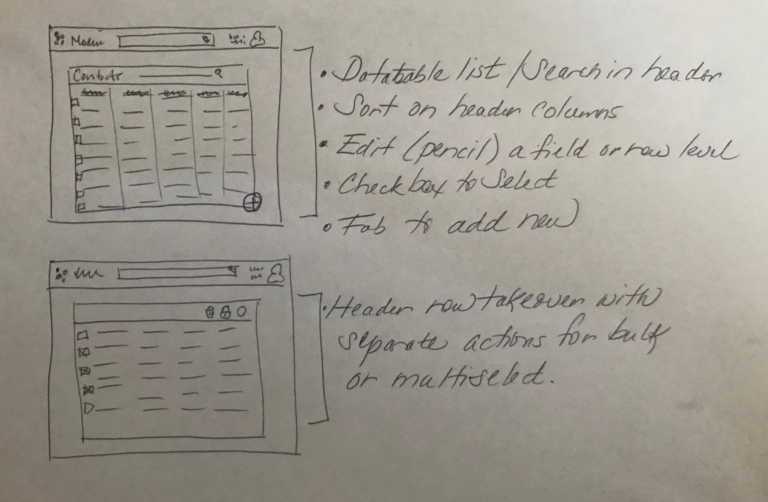 Contacts
• Datatable list / Search in header
• Sort on header columns
• Edit (pencil) a field or row level
• Checkbox to select
• Fab to add new
• Header row takeover with
separate actions for bulk
or multiselect.